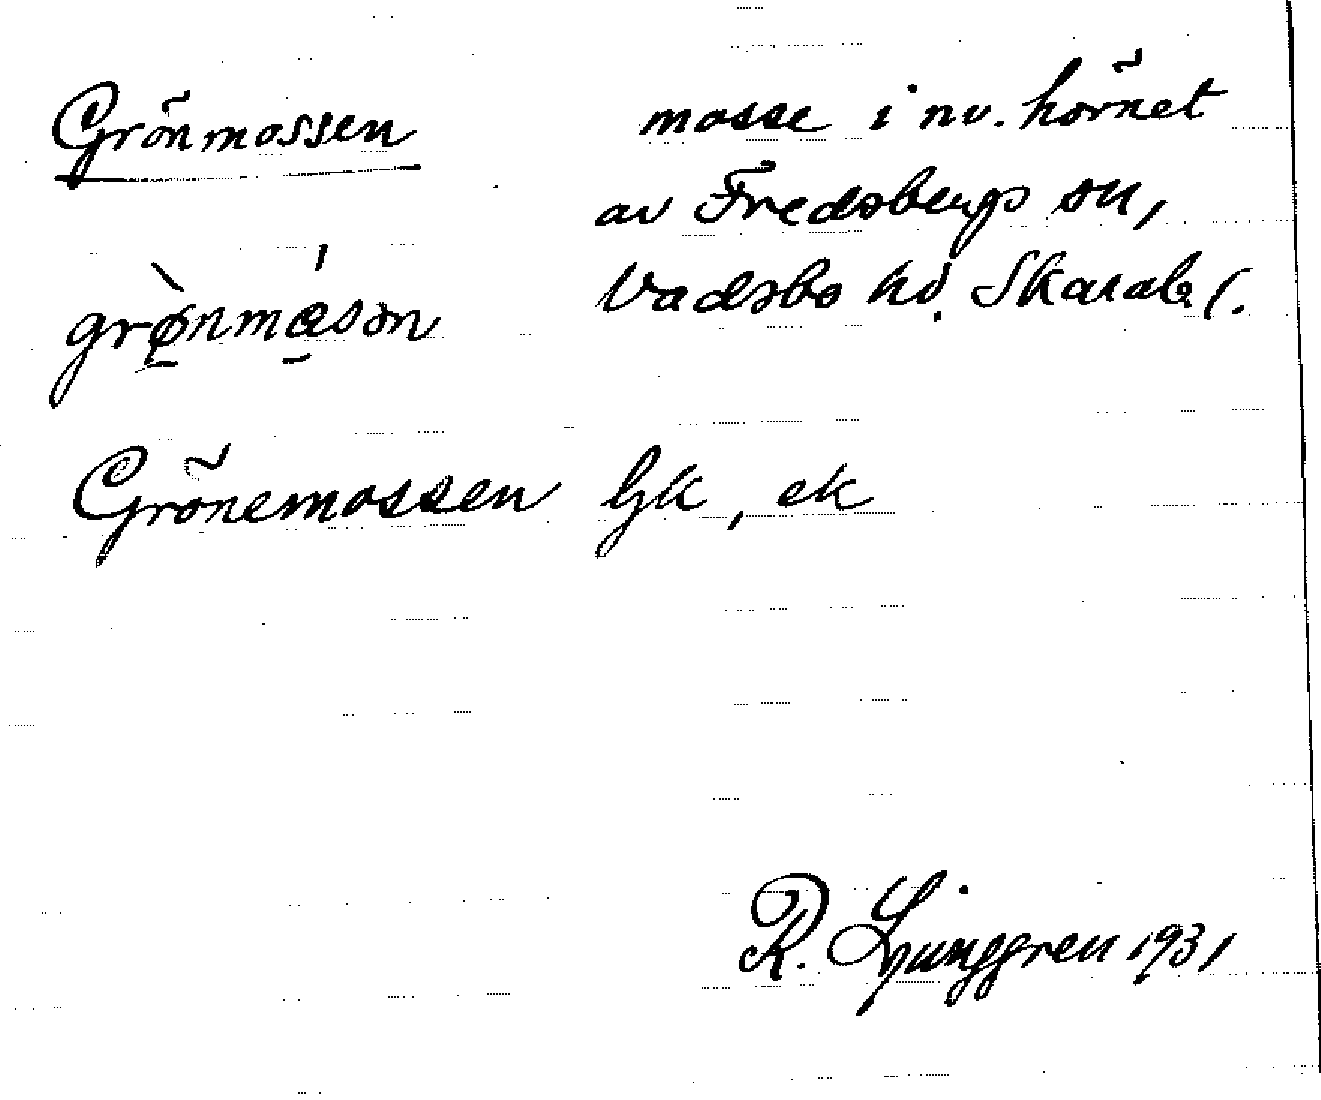 Grönmossen
mosse i nv. hörnet
av Fredsbergs sn,
Vadsbo hd. Skarab l.
grø̀nmó̱sən
Grönemossen Gjk, ek
R. Ljunggren 1931